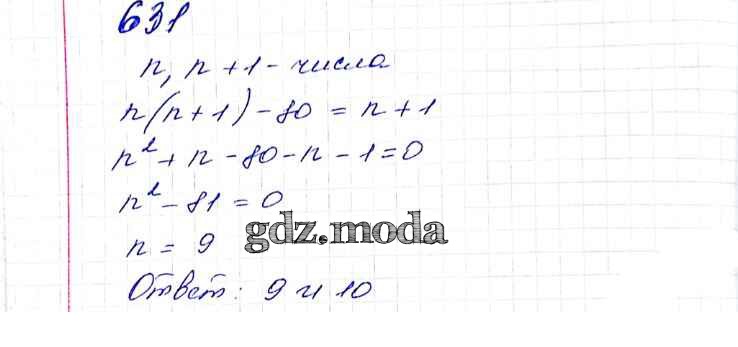 631
n, n + 1 - числа
n(n+1) - 80 = n + 1
n² + n - 80 - n - 1 = 0
n² - 81 = 0
n = 9
gdz.moda
Ответ: 9 и 10